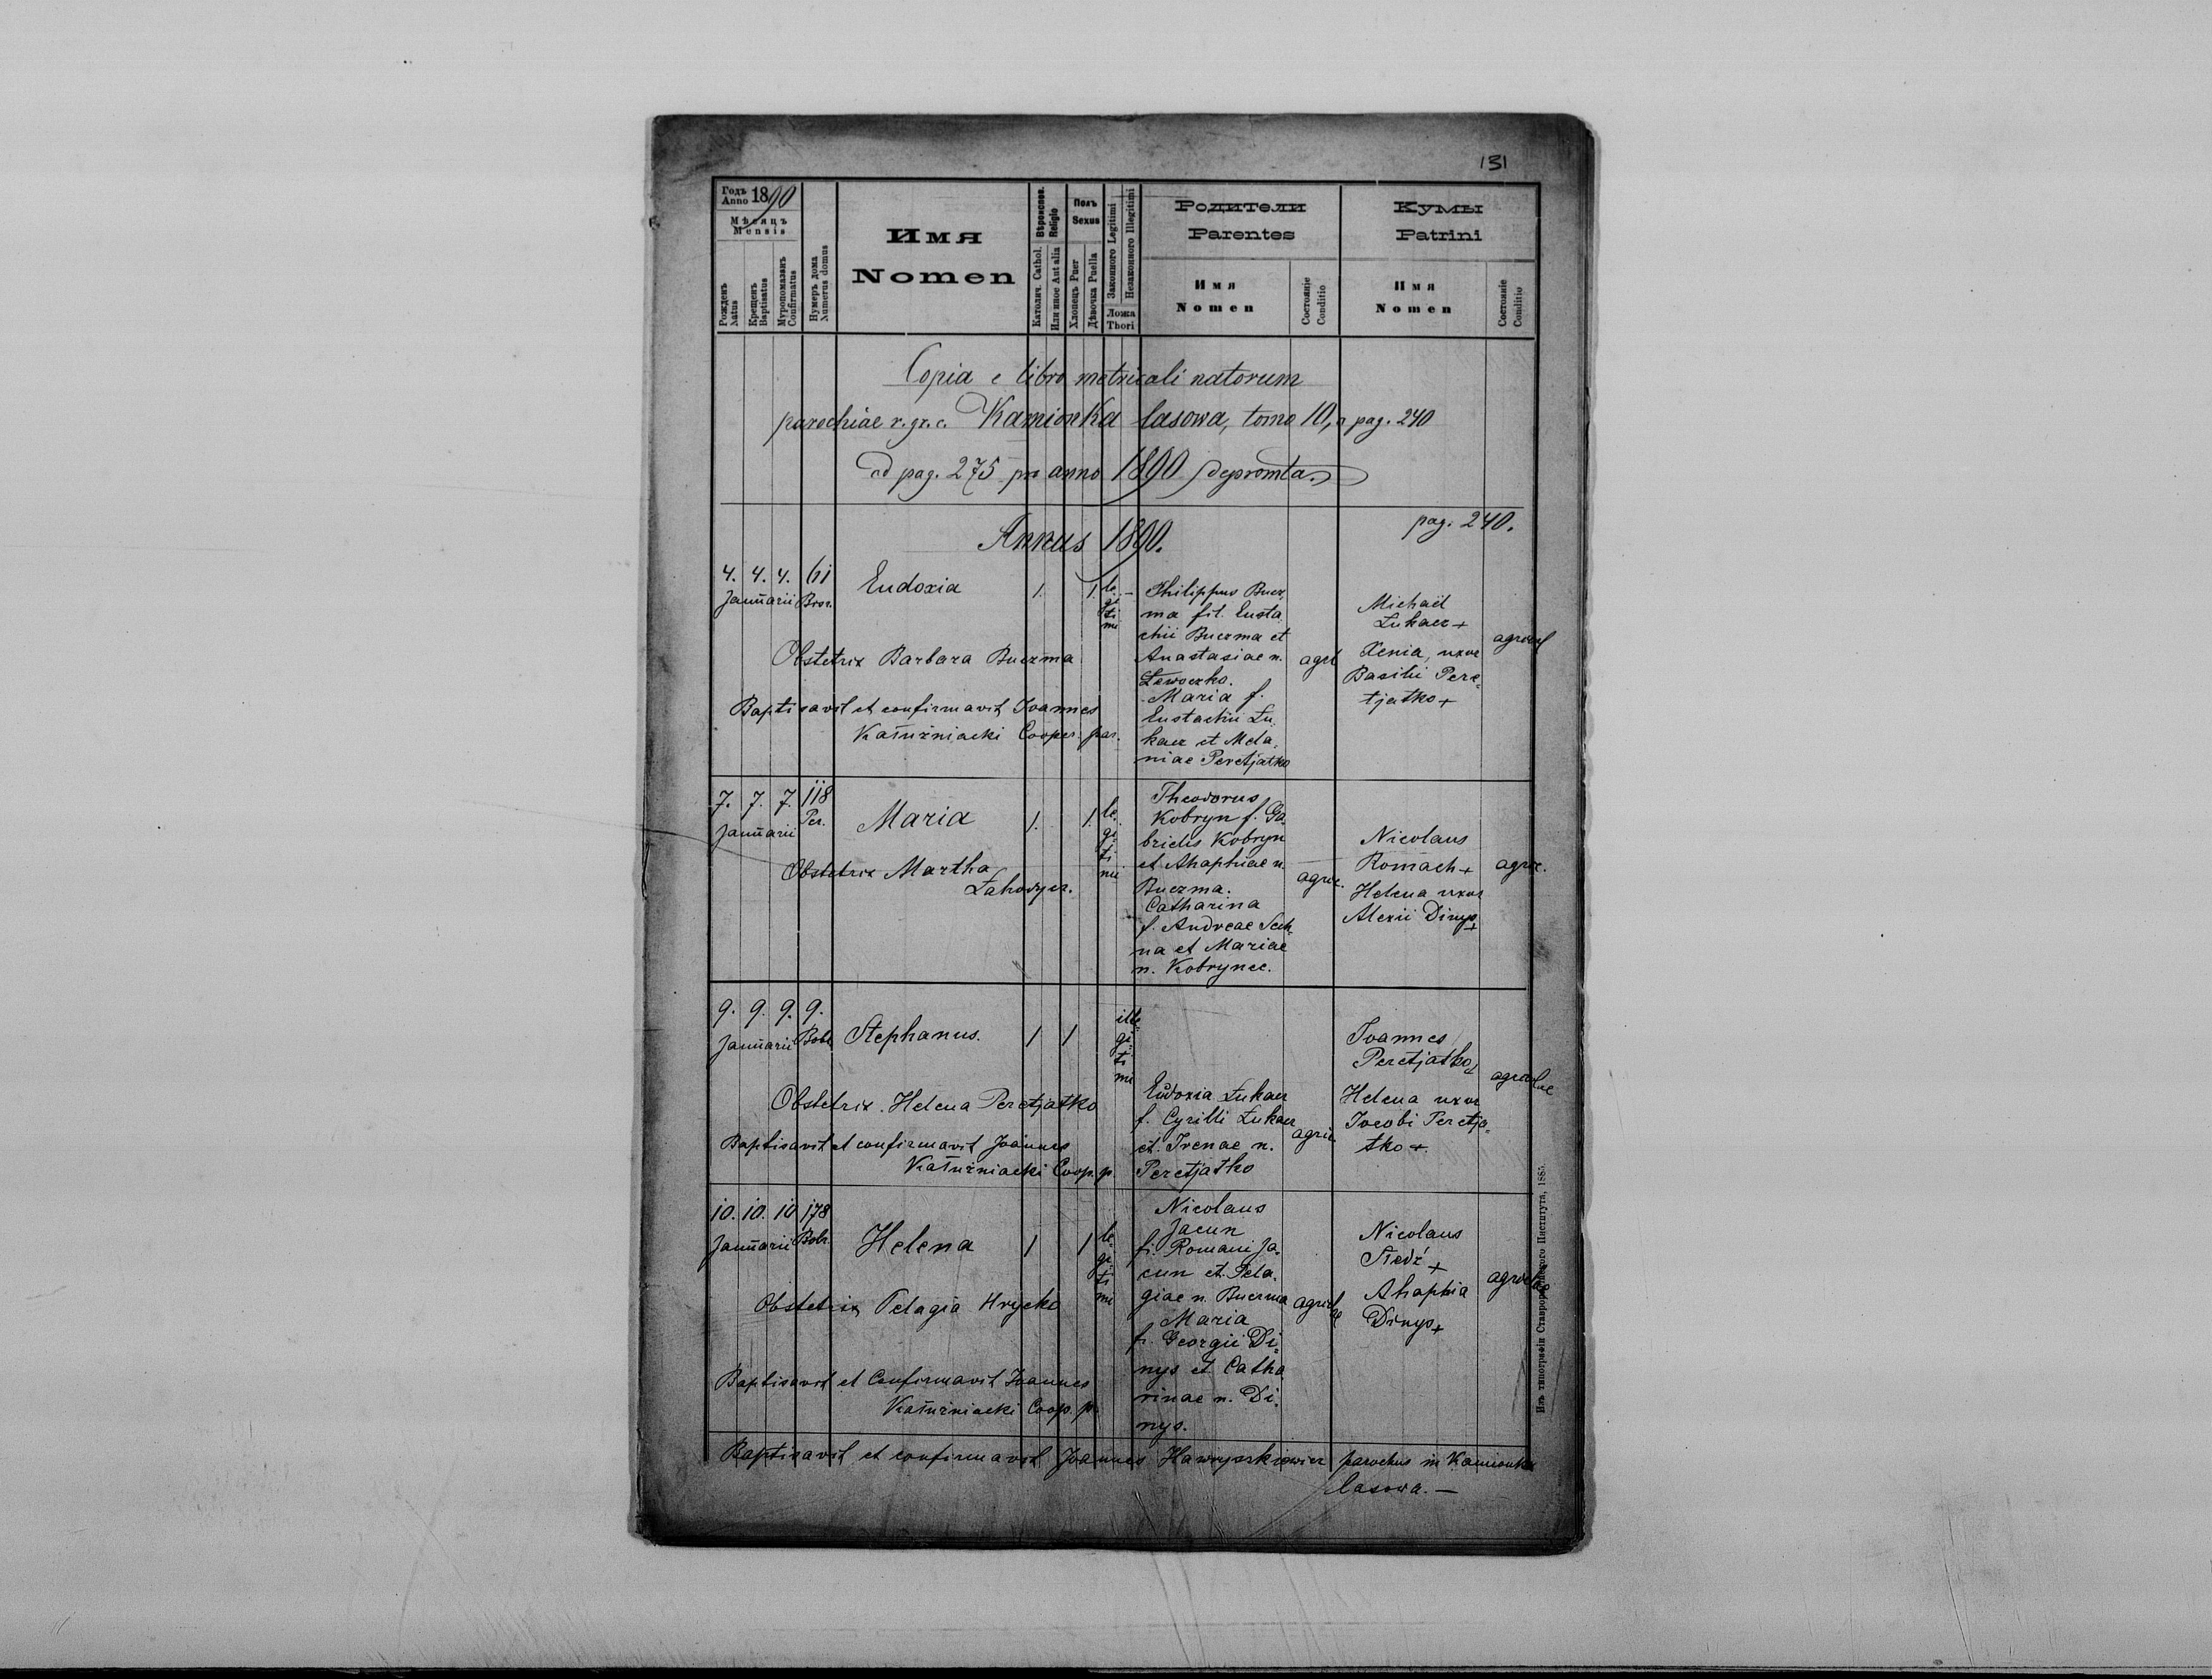 131
Годъ Anno 1890
Мѣсяцъ
Mensis
Рожденъ Natus
Крещенъ Baptisatus
Мѵропомазанъ Confirmatus
Нумеръ дома Numerus domus
Имя
Nomen
Вѣроиспов. Religio
Католич. Cathol.
Или иное Aut alia
Полъ
Sexus
Хлопецъ Puer
Дѣвочка Puella
Законного Legitimi
Незаконного Illegitimi
Ложа
Thori
Родители
Parentes
Имя
Nomen
Состоянiе
Conditio
Кумы
Patrini
Имя
Nomen
Состоянiе
Conditio
Copia e libro metricali natorum
parochiae r. gr. c. Kamionka lasowa, tomo 10, a pag. 240
ad pag. 275 pro anno 1890 depromta.
Annus 1890.
pag. 240.
4. 4. 4. 61
Januarii Bror.
Eudoxia
1. 1. le gi ti mi
Obstetrix Barbara Buczma
Baptisavit et confirmavit Joannes
Kałużniacki Cooper. par.
Philippus Bucz
ma fil. Eusta
chii Buczma et
Anastasiae n.
Lewoczko.
Maria f.
Eustachii Łu
kacz et Mela
niae Peretjatko
agri
Michaël
Łukacz +
Xenia, uxor
Basilii Pere
tjatko +
agricol
7. 7. 7. 118
Januarii Per.
Maria
1. 1. le gi ti mi
Obstetrix Martha
Łahodycz.
Theodorus
Kobryn f. Ga
brielis Kobryn
et Ahaphiae n.
Buczma.
Catharina
f. Andreae Sech
na et Mariae
n. Kobrynec.
agric.
Nicolaus
Romach +
Helena uxor
Alexii Dinys +
agric.
9. 9. 9. 9.
Januarii Bobr.
Stephanus.
1 1 ille gi ti mi
Obstetrix Helena Peretjatko
Baptisavit et confirmavit Joannes
Kałużniacki Coop. p.
Eudoxia Łukacz
f. Cyrilli Łukacz
et Irenae n.
Peretjatko
agric
Joannes
Peretjatko +
Helena uxor
Jacobi Peretja
tko +.
agricolae
10. 10. 10 178
Januarii Bobr.
Helena
1 1 le gi ti mi
Obstetrix Pelagia Hrycko
Baptisavit et Confirmavit Joannes
Kałużniacki Coop. p.
Nicolaus
Jacun
f. Romani Ja
cun et Pela
giae n. Buczma
Maria
f. Georgii Di
nys et Catha
rinae n. Di
nys.
agricolae
Nicolaus
+
Ahaphia
Dinys +
agricolae
Baptisavit et confirmavit Joannes Hawryszkiewicz parochus in Kamionka
lasowa. —
Изъ типографiи Ставропигiйского Института, 1885.